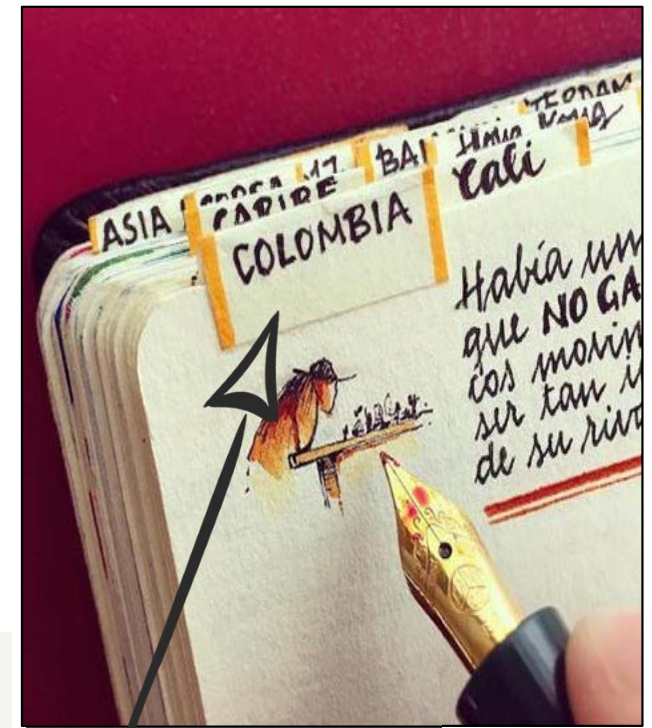 ASIA
CARIBE
BA
COLOMBIA
Cali
Había un
que NO GA
cos movin
ser tan i
de su riva